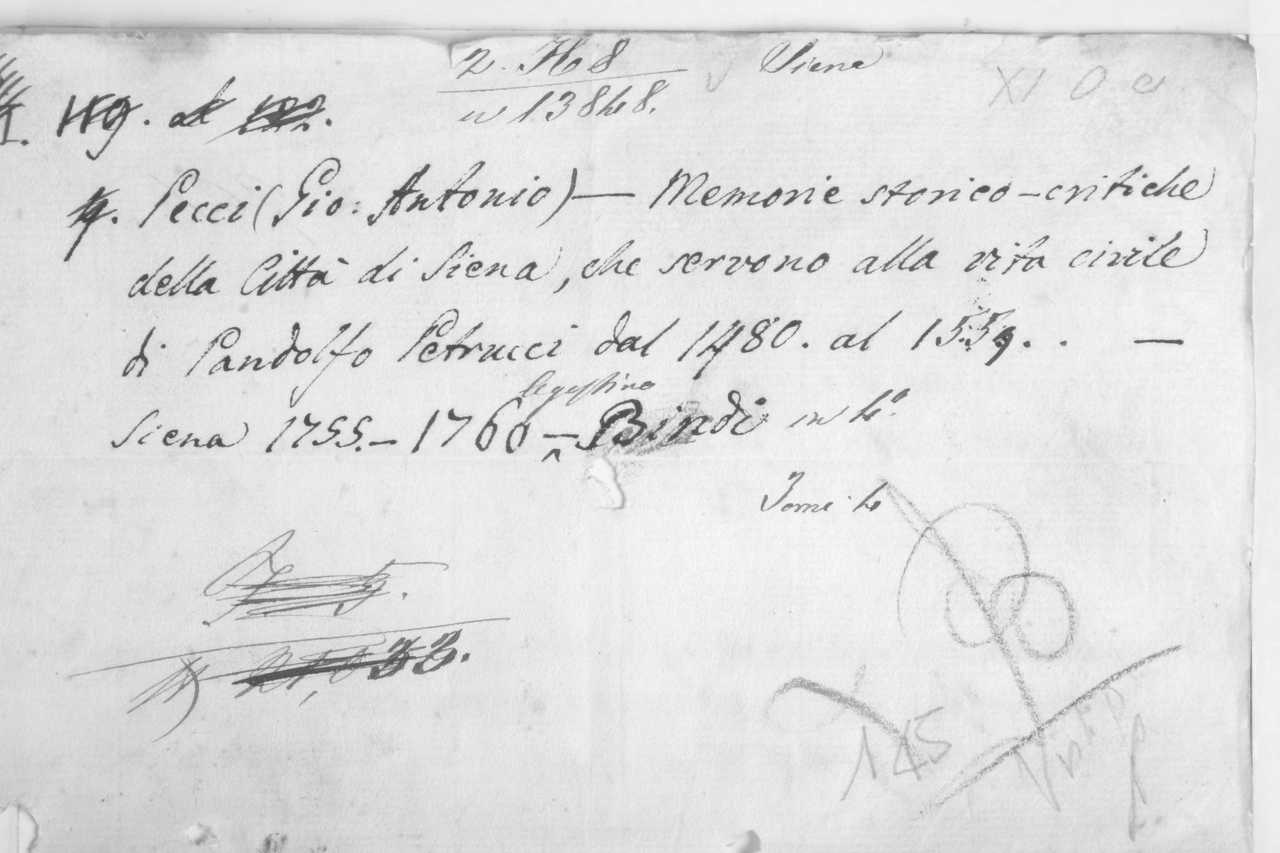 2. H 8 Siena XI O
n 13848.
I. 119. al 122.
4. Pecci (Gio: Antonio) — Memorie storico-critiche
della Città di Siena, che servono alla vita civile
di Pandolfo Petrucci dal 1480. al 1559. . —
Siena 1755. - 1760 — Bindi in 4º
Tomi 4
33.
145